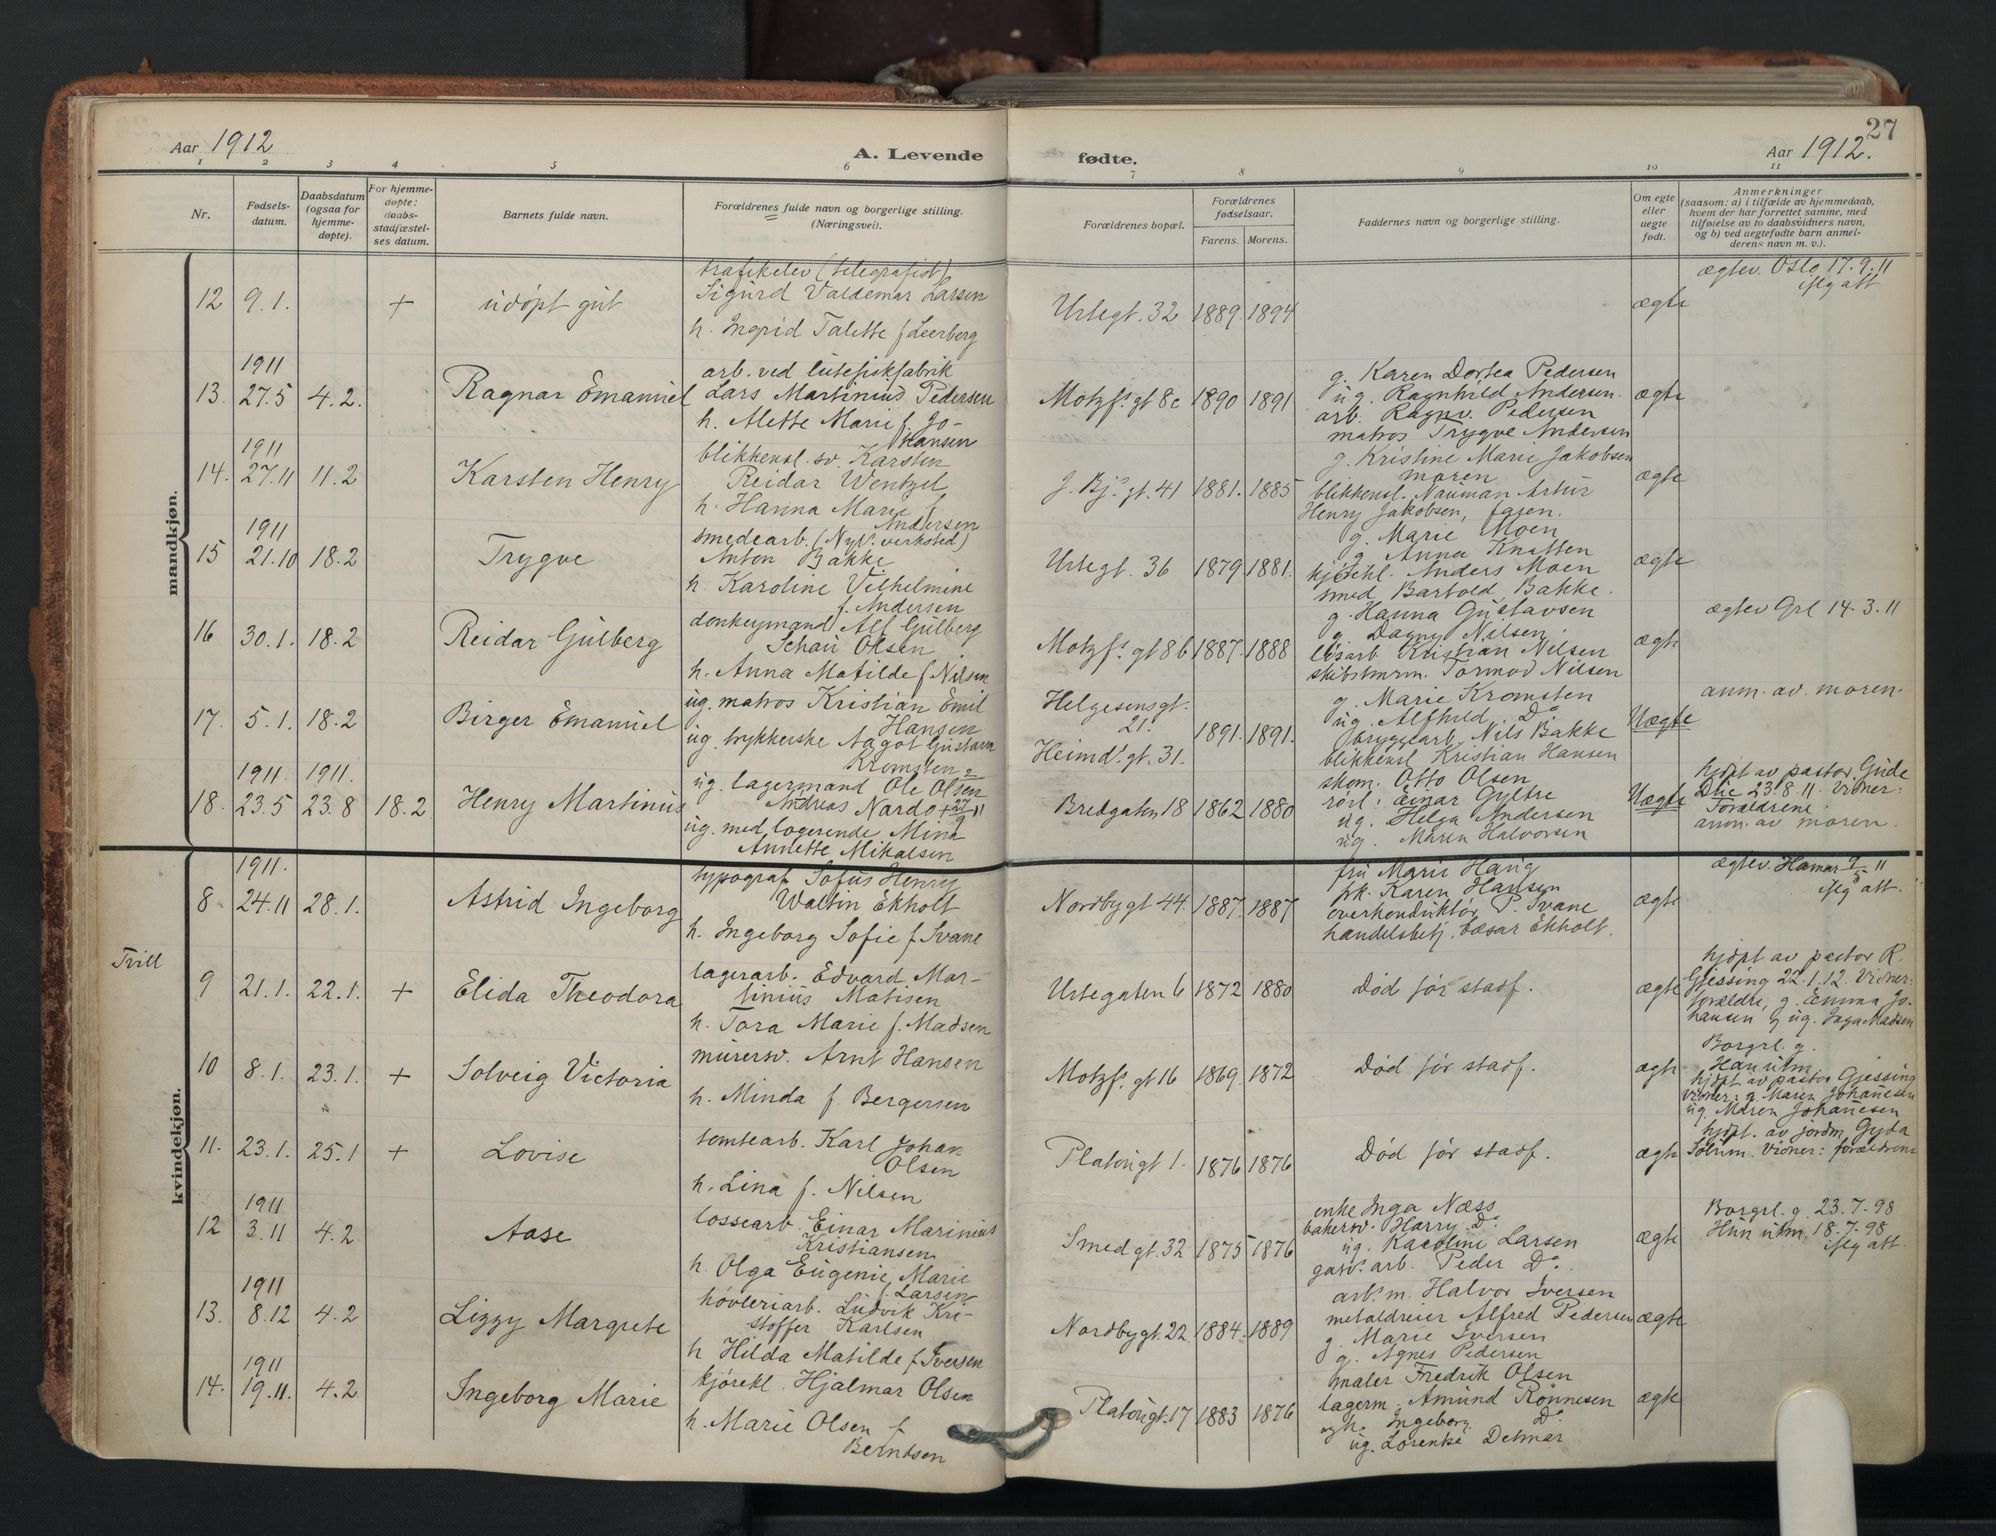 Aar 1912
A. Levende
fødte.
27
Aar 1912.
1 2 3 4 5 6 7 8 9 10 11
Nr.
Fødsels-
datum.
Daabsdatum
(ogsaa for
hjemme-
døpte).
For hjemme-
døpte:
daabs-
stadfæstel-
ses datum.
Barnets fulde navn.
Forældrenes fulde navn og borgerlige stilling.
(Næringsvei).
Forældrenes bopæl.
Forældrenes
fødselsaar.
Farens. Morens.
Faddernes navn og borgerlige stilling.
Om egte
eller
uegte
født.
Anmerkninger
(saasom: a) i tilfælde av hjemmedaab,
hvem der har forrettet samme, med
tilføielse av to daabsvidners navn,
og b) ved uegtefødte barn anmel-
derens navn m. v.).
mandkjøn.
12 9.1. + udøpt gut
trafikelev (telegrafist)
Sigurd Valdemar Larsen
h. Ingrid Talette f Leerberg
Urtegt. 32 1889. 1894
ægte
ægtev. Oslo 17.9.11
iflg att
1911
13. 27.5 4.2. Ragnar Emanuel
arb. ved lutefiskfabrik
Lars Martinius Pedersen
h. Alette Marie f. Jo-
hansen
Motzfs. gt 8c 1890 1891
g. Karen Dortea Pedersen
ug. Ragnhild Andersen.
arb. Ragnv. Pedersen
matros Trygve Andersen
ægte
1911
14. 27.11 11.2 Karsten Henry
blikkensl. sv. Karsten
Reidar Wentzel
h. Hanna Marie f.
Andersen
J. Bjs. gt. 41 1881. 1885
g. Kristine Marie Jakobsen
moren
blikkensl. Nauman Artur
Henry Jakobsen, faren.
ægte
1911
15 21.10 18.2 Trygve
smedearb. (Nyl. verksted)
Anton Bakke
h. Karoline Vilhelmine
f. Andersen
Urtegt. 36 1879 1881.
g. Marie Moen
g Anna Knatten
kjørekl. Anders Moen
smed Bartold Bakke.
ægte
16 30.1. 18.2 Reidar Gulberg
donkeymand Alf Gulberg
Schau Olsen
h. Anna Matilde f Nilsen
Motzfs. gt 8b 1887. 1888
g. Hanna Gustavsen
g. Dagny Nilsen.
løsarb Kristian Nilsen
skibstmrm. Tormod Nilsen
ægte
ægtev Grl 14.3.11
17. 5.1. 18.2 Birger Emanuel
ug. matros Kristian Emil
Hansen
ug. trykkerske Aagot Gustava
Kromsten
Helgesensgt.
21.
Heimdsgt. 31.
1891. 1891.
g. Marie Kromsten
ug. Alfhild Do.
bryggearb. Nils Bakke
blikkensl Kristian Hansen
Uægte
anm. av. moren.
1911. 1911.
18. 23.5 23.8 18.2. Henry Martinius
ug. lagermand Ole Olsen
Andreas Nardo
ug. med logerende Mina
Annette Mikalsen
Bredgaten 18 1862 1880
skom. Otto Olsen
rørl: Einar Gyltre
ug. Helga Andersen
ug. Maren Halvorsen
Uægte
hjdpt av pastor. Gude
23.8.11. Vidner:
Forældrene.
anm. av moren.
kvindekjøn.
1911.
8 24.11 28.1. Astrid Ingeborg
typograf Sofus Henry
Waltin Ekholt
h. Ingeborg Sofie f Svane
Nordbygt 44. 1887. 1887
fru Marie Haug
frk. Karen Hansen
overkonduktør P. Svane
handelsbetj. Cæsar Ekholt.
ægte
ægtev. Hamar 9/5 11
iflg att.
Tvill
9 21.1. 22.1. + Elida Theodora
lagerarb. Edvard Mar-
tinius Matisen
h. Tora Marie f. Madsen
Urtegaten 6 1872 1880
Død før stadf.
ægte
hjdpt av pastor R.
Gjessing 22.1.12. Vidner:
forældre, g. Emma Jo-
hansen og ug. Inga Madsen
10 8.1. 23.1. + Solveig Victoria
murersv. Arnt Hansen
h. Minda f. Bergersen
Motzfs. gt 16 1869. 1872
Død før stadf.
ægte
Borgrl. g.
Han utm.
hjdpt av pastor Gjessing
vidner: g. Maren Johansen
ug. Maren Johansen
11. 23.1. 25.1 + Lovise
tomtearb. Karl Johan
Olsen
h. Lina f. Nilsen
Platousgt 1. 1876 1876
Død før stadf.
ægte
hjdpt. av jordm Gyda
Solum. Vidner: forældrene
1911
12 3.11 4.2 Aase
lossearb. Einar Marinius
Kristiansen
h. Olga Eugenie Marie
f Larsen
Smedgt. 32 1875 1876
enke Inga Næss
bakersv. Harry Do.
ug. Karoline Larsen
gasv. arb. Peder Do.
ægte
Borgrl. g. 23.7-98
Hun utm. 18.7-98
iflg att.
1911
13. 8.12 4.2 Lizzy Margrete
høvleriarb. Ludvik Kri-
stoffer Karlsen
h Hilda Matilde f Iversen
Nordbygt. 22 1884. 1889
arb. m. Halvor Iversen
metaldreier Alfred Pedersen
g Marie Iversen
g. Agnes Pedersen
ægte
1911
14. 19.11. 4.2 Ingeborg Marie
kjørekl. Hjalmar Olsen
h. Marie Olsen f
Berntsen
Platousgt. 17 1883 1876
maler Fredrik Olsen
lagerm. Amund Rønnesen
Ingeborg Do.
ug. Lorentse Detmar
ægte